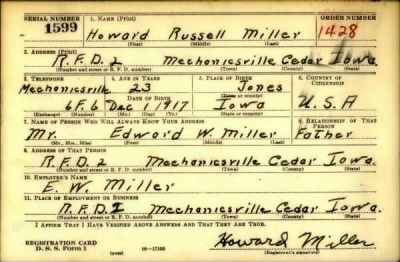 SERIAL NUMBER 1. NAME (Print) ORDER NUMBER
1599 Howard Russell Miller 1428
(First) (Middle) (Last)
2. ADDRESS (Print)
R.F.D. 2 Mechanicsville Cedar Iowa
(Number and street or R. F. D. number) (Town) (County) (State)
3. TELEPHONE 4. AGE IN YEARS 5. PLACE OF BIRTH 6. COUNTRY OF CITIZENSHIP
Mechanicsville 23 Jones
DATE OF BIRTH (Town or county)
6F6 Dec 1 1917 Iowa U.S.A
(Exchange) (Number) (Mo.) (Day) (Yr.) (State or country)
7. NAME OF PERSON WHO WILL ALWAYS KNOW YOUR ADDRESS 8. RELATIONSHIP OF THAT PERSON
Mr. Edward W. Miller Father
(Mr., Mrs., Miss) (First) (Middle) (Last)
9. ADDRESS OF THAT PERSON
R.F.D. 2 Mechanicsville Cedar Iowa.
(Number and street or R. F. D. number) (Town) (County) (State)
10. EMPLOYER'S NAME
E. W. Miller
11. PLACE OF EMPLOYMENT OR BUSINESS
R.F.D. 2 Mechanicsville Cedar Iowa.
(Number and street or R. F. D. number) (Town) (County) (State)
I AFFIRM THAT I HAVE VERIFIED ABOVE ANSWERS AND THAT THEY ARE TRUE.
REGISTRATION CARD
D. S. S. Form 1 (over) 16—17105 Howard Miller
(Registrant's signature)